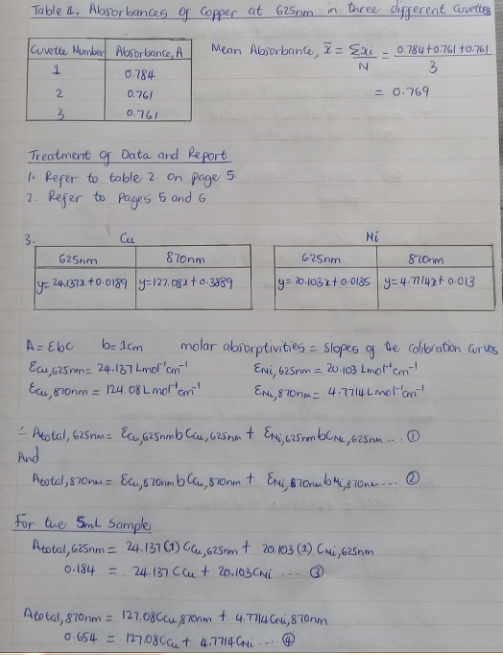 Table 4. Absorbances of Copper at 625nm in three different Cuvettes
Cuvette Number Absorbance, A
1 0.784
2 0.761
3 0.761
Mean Absorbance, x̄ = Σxi/N = 0.784+0.761+0.761/3
= 0.769
Treatment of Data and Report
1. Refer to table 2 on page 5.
2. Refer to Pages 5 and 6
3.
Cu
625nm 870nm
y=24.137x+0.0189 y=127.08x+0.3889
Ni
625nm 870nm
y=20.103x+0.0135 y=4.7714x+0.013
A=Ebc b=1cm molar absorptivities = slopes of the calibration curves
ECu,625nm= 24.137 Lmol⁻¹cm⁻¹ ENi,625nm = 20.103 Lmol⁻¹cm⁻¹
ECu,870nm = 124.08 Lmol⁻¹cm⁻¹ ENi,870nm = 4.7714 Lmol⁻¹cm⁻¹
∴ Atotal,625nm= ECu,625nmbCCu,625nm + ENi,625nmbCNi,625nm ... ①
And
Atotal,870nm = ECu,870nmbCCu,870nm + ENi,870nmbNi,870nm ... ②
For the 5mL Sample
Atotal,625nm = 24.137(1)CCu,625nm + 20.103(1)CNi,625nm
0.184 = 24.137CCu + 20.103CNi ... ③
Atotal,870nm = 127.08CCu,870nm + 4.7714CNi,870nm
0.654 = 127.08CCu + 4.7714CNi ... ④